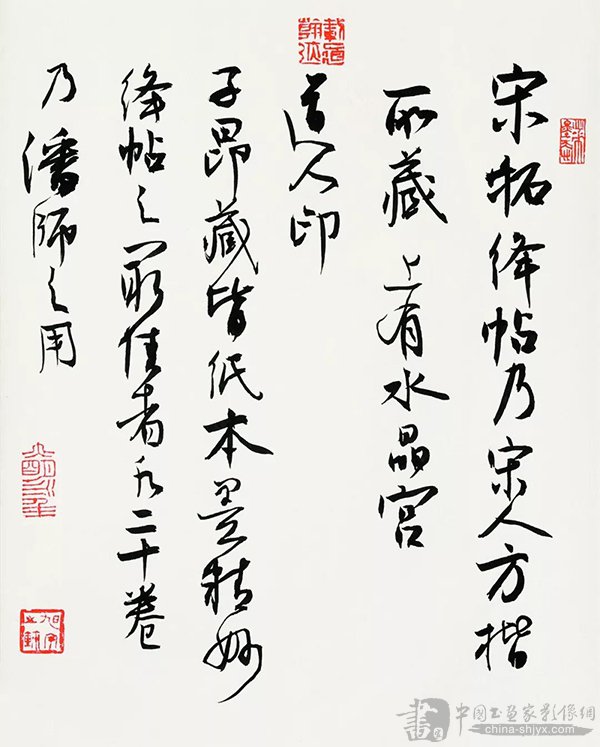 宋拓绛帖乃宋人方楷
所藏上有水晶宫
道人印
子昂藏皆纸本墨精妙
绛帖之最佳者凡二十卷
乃潘师之用
中国书画家影像网
china-shjyx.com